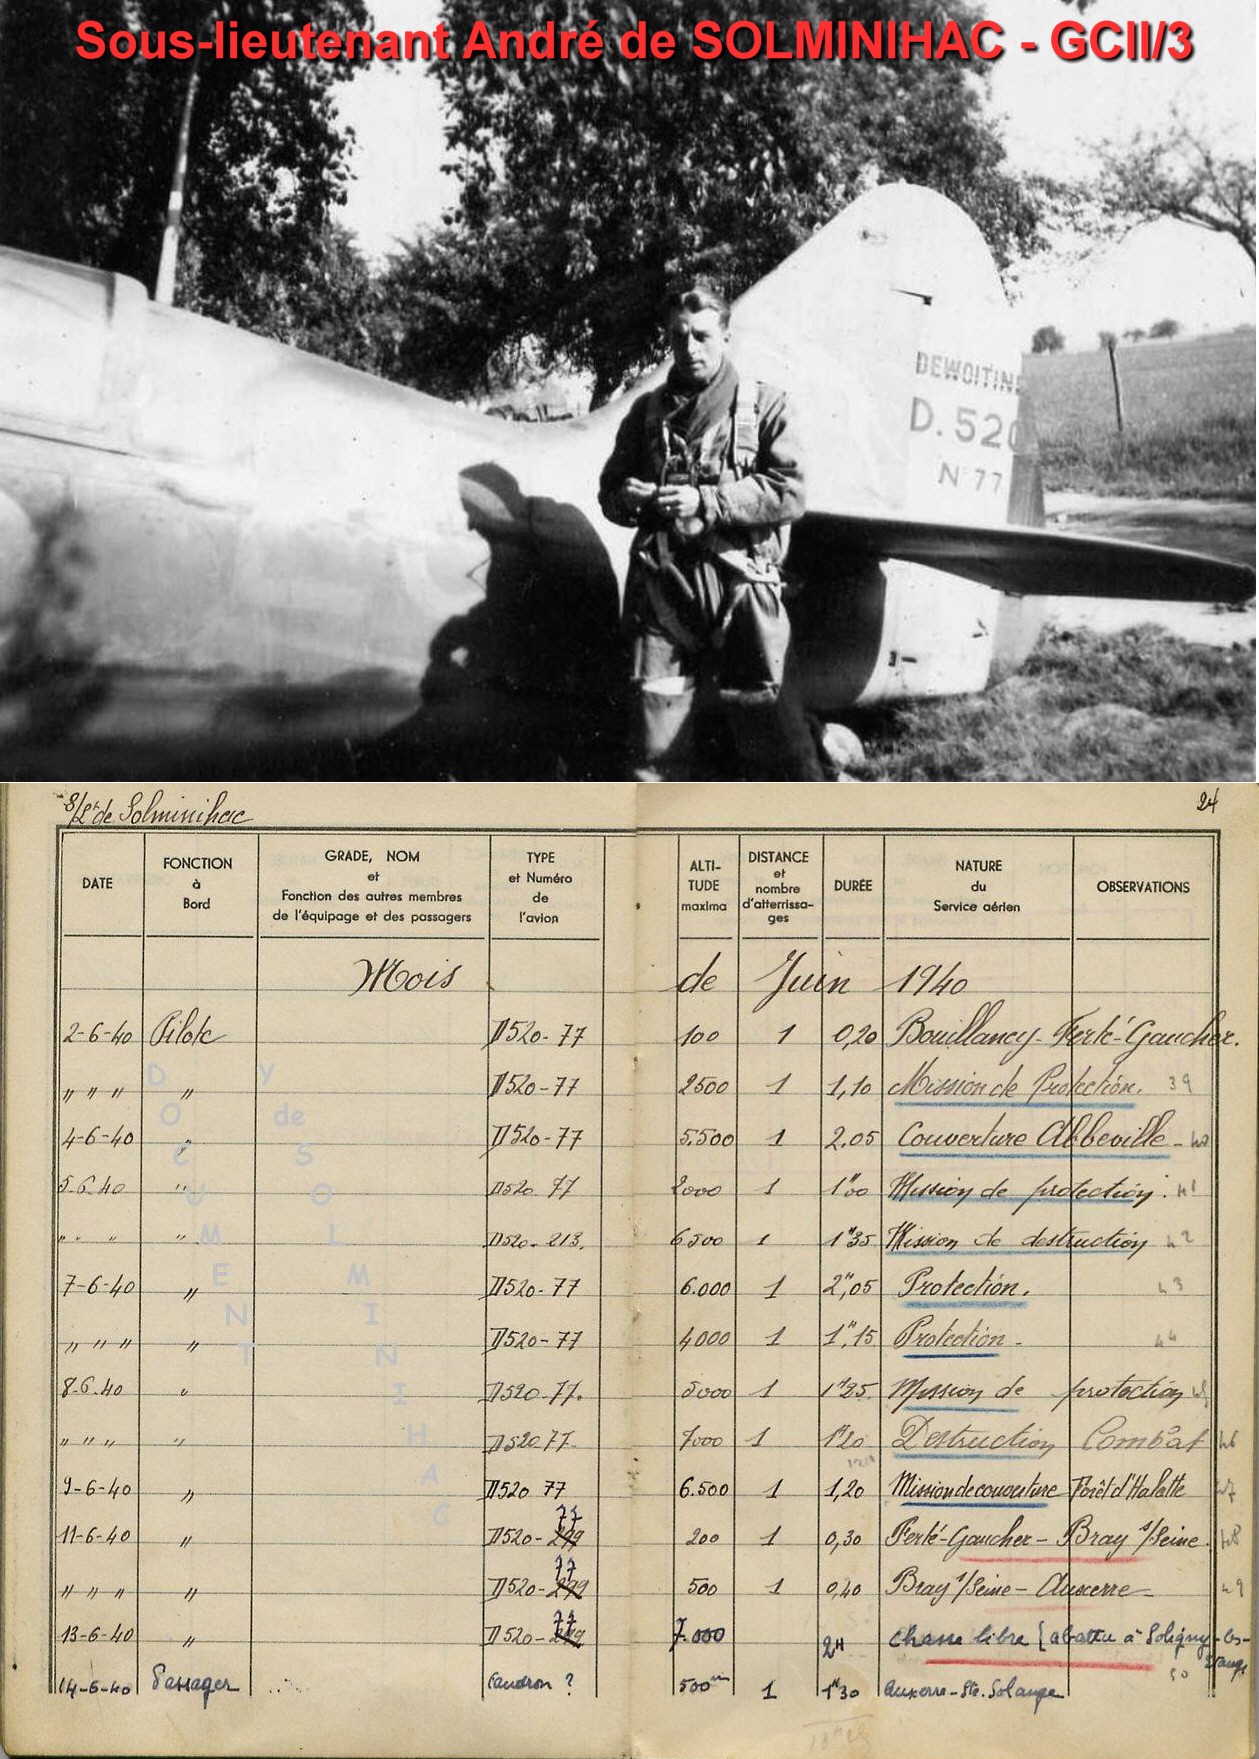 Sous-lieutenant André de SOLMINIHAC - GCII/3
DEWOITINE
D.520
N°77
S/Lt de Solminihac
24
DATE
FONCTION
à
Bord
GRADE, NOM
et
Fonction des autres membres
de l'équipage et des passagers
TYPE
et Numéro
de
l'avion
ALTI-
TUDE
maxima
DISTANCE
et
nombre
d'atterrissa-
ges
DURÉE
NATURE
du
Service aérien
OBSERVATIONS
Mois de Juin 1940
2-6-40 Pilote D520-77 100 1 0,20 Bouillancy-Ferté-Gaucher.
" " " " D520-77 2500 1 1,10 Mission de Protection. 39
4-6-40 " D520-77 5.500 1 2.05 Couverture Abbeville - 40
5.6.40 " D520.77 2000 1 1h00 Mission de protection. 41
" " " " D520-213. 6500 1 1h35 Mission de destruction 42
7-6-40 " D520-77 6.000 1 2h,05 Protection. 43
" " " " D520-77 4000 1 1h,15 Protection - 44
8.6.40 " D520-77. 5000 1 1h25. Mission de protection 45
" " " " D52077. 7000 1 1h20 Destruction Combat 46
9-6-40 " D520 77 6.500 1 1,20 Mission de couverture Forêt d'Halatte 47
11-6-40 " D520-77 200 1 0,30 Ferté-Gaucher-Bray s/Seine. 48
" " " " D520-77 500 1 0,40 Bray s/Seine-Auxerre- 49
13-6-40 " D520-77 7.000 2H chasse libre [abattu à Soligny-les-
Etangs
50
14-6-40 Passager Caudron ? 500m 1 1h30 Auxerre-Ste.Solange
DOCUMENT
Y de SOLMINIHAC